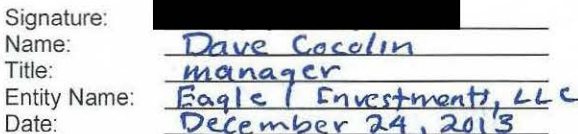 Signature:
Name: Dave Cocolin
Title: manager
Entity Name: Eagle 1 Investments, LLC
Date: December 24, 2013